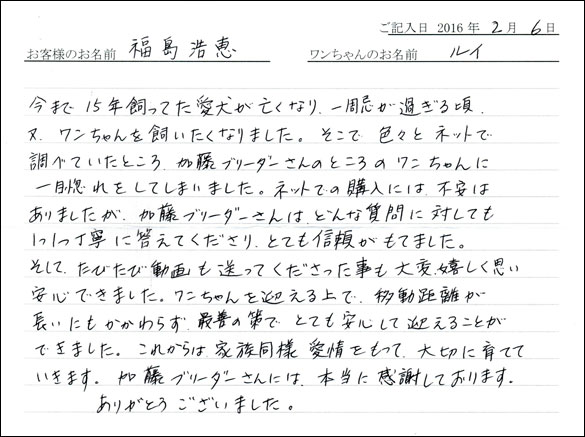 ご記入日 2016年2月6日
お客様のお名前 福島浩恵 ワンちゃんのお名前 ルイ
今まで15年飼ってた愛犬が亡くなり、一周忌が過ぎる頃、
又、ワンちゃんを飼いたくなりました。そこで色々とネットで
調べていたところ、加藤ブリーダーさんのところのワンちゃんに
一目惚れをしてしまいました。ネットでの購入には、不安は
ありましたが、加藤ブリーダーさんは、どんな質問に対しても
1つ1つ丁寧に答えてくださり、とても信頼がもてました。
そして、たびたび動画も送ってくださった事も大変、嬉しく思い
安心できました。ワンちゃんを迎える上で、移動距離が
長いにもかかわらず、最善の策で、とても安心して迎えることが
できました。これからは、家族同様、愛情をもって、大切に育てて
いきます。加藤ブリーダーさんには、本当に感謝しております。
ありがとうございました。